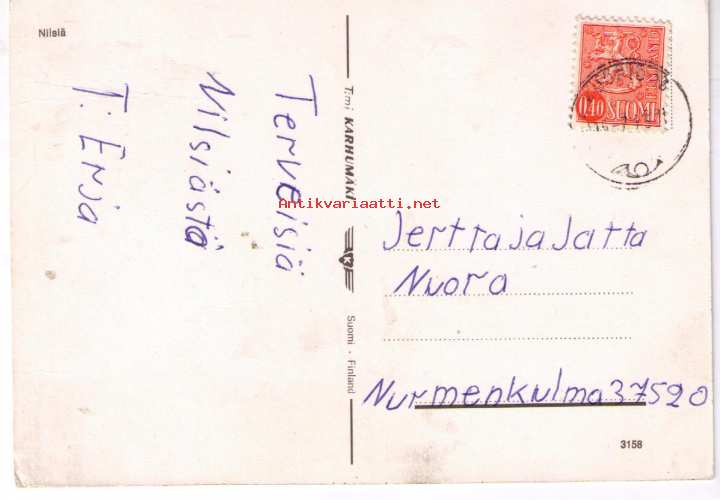 Nilsiä
Terveisiä
Nilsiästä
T: Erja
T:mi KARHUMÄKI
Suomi - Finland
0,40 SUOMI
FINLAND
Antikvariaatti.net
Jerttajajatta
Nuora
Nurmenkulma 37520
3158